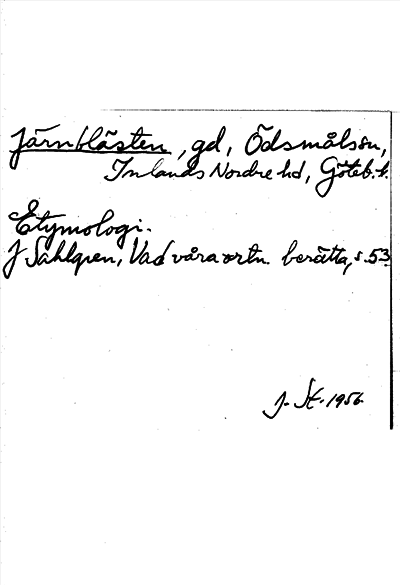 Järnblästen, gd, Ödsmålssn,
Inlands Nordre hd, Göteb. l.
Etymologi.
J Sahlgren, Vad våra ortn. berätta, s. 53.
J. St. 1956